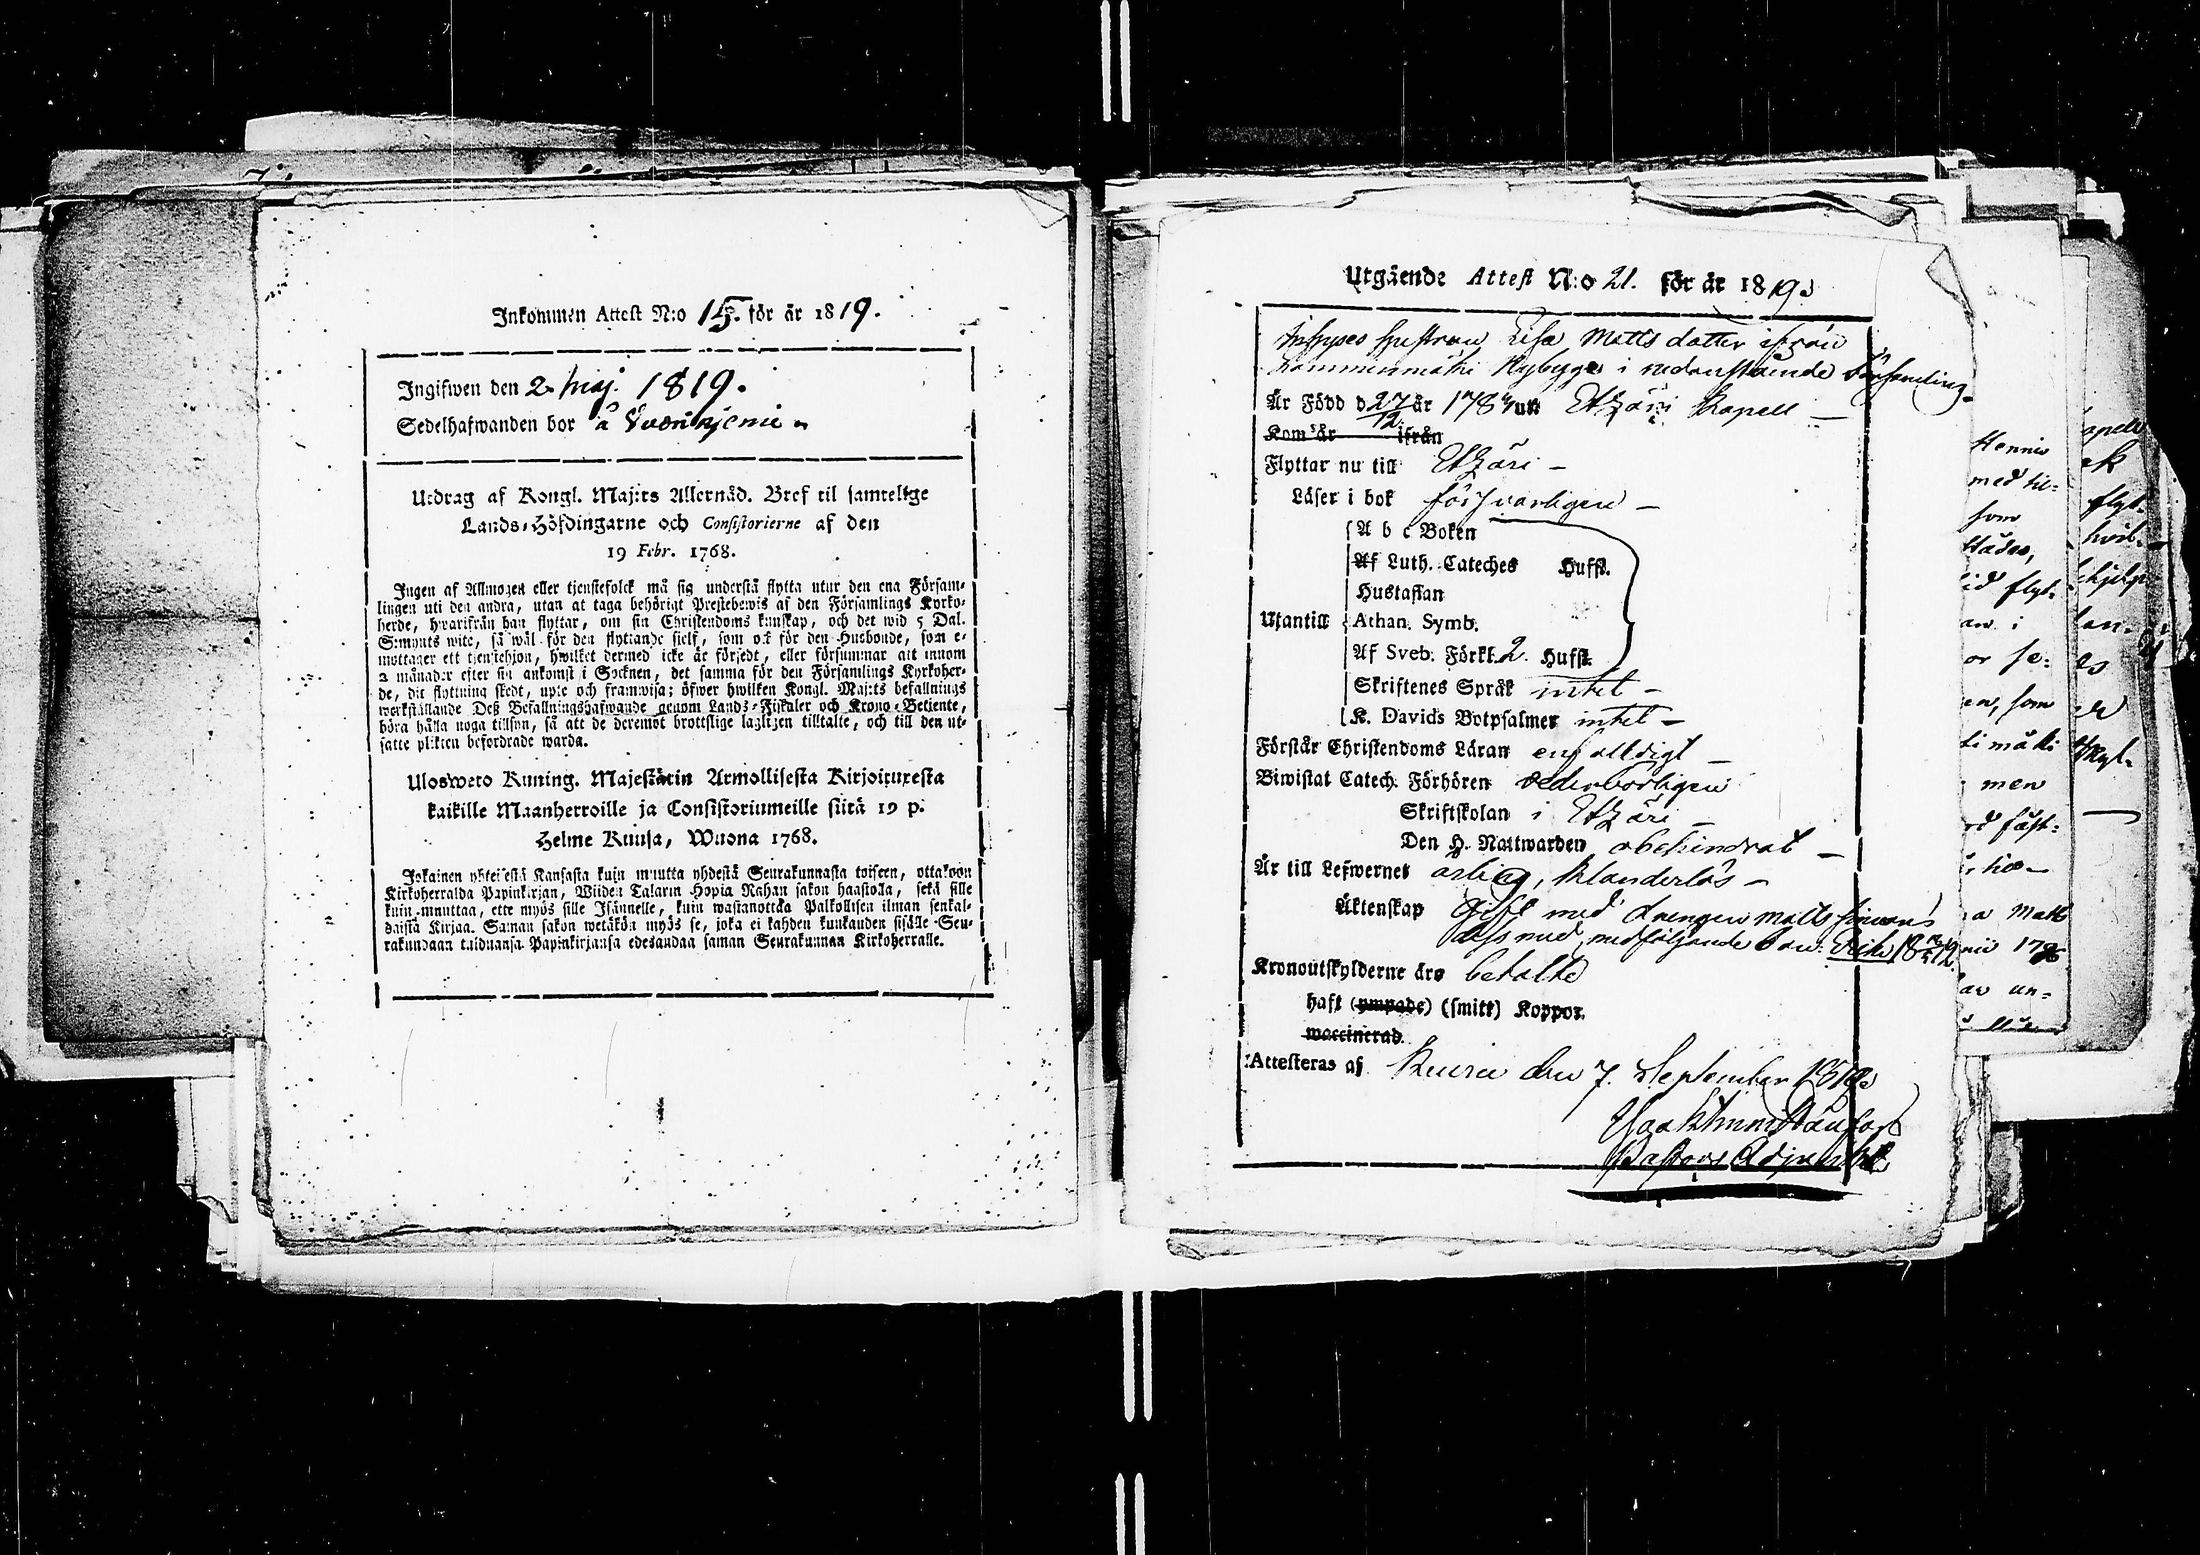 Inkommen Attest N:o 15. för år 1819.
Ingifwen den 2 Maj. 1819.
Sedelhafwanden bor å
Utdrag af Kongl. Maj:ts Allernåd. Bref til samtelige
Lands-Höfdingarne och Consistorierne af den
19 Febr. 1768.
Ingen af Allmogen eller tjenstefolck må sig understå flytta utur den ena Försam-
lingen uti den andra, utan at taga behörigt Prestebewis af den Församlings Kyrko-
herde, hwarifrån han flyttar, om sin Christendoms kunskap, och det wid 5 Dal.
S:mynts wite, så wäl för den flyttande sielf, som ock för den Husbonde, som e-
mottager ett tjenstehjon, hwilket dermed icke är försedt, eller försummar att innom
2 månader efter sin ankomst i Socknen, det samma för den Församlings Kyrkoher-
de, dit flyttning skedt, upte och framwisa; öfwer hwilken Kongl. Maj:ts befallnings
werkställande Deß Befallningshafwande genom Lands-Fiskaler och Krono-Betiente,
böra hålla noga tillsyn, så att de deremot brottslige lagligen tilltalte, och till den ut-
satte plikten befordrade warda.
Uloswetο Kuning. Majestätin Armollisesta Kirjoituxesta
kaikille Maanherroille ja Consistoriumeille siitä 19 p:
Helme Kuusa, Wuona 1768.
Jokainen yhteisestä Kansasta kuin muutta yhdestä Seurakunnasta toiseen, ottakoon
Kirkoherralda Papinkirjan, Wiiden Talarin Hopia Rahan sakon haastolla, sekä sille
kuin muuttaa, ette myös sille Isännelle, kuin wastanottaa Palkollisen ilman senkal-
daista Kirjaa. Saman sakon wetäkön myös se, joka ei kahden kuukauden sisälle Seu-
rakundaan tulduansa Papinkirjansa edesandaa saman Seurakunnan Kirkoherralle.
Utgående Attest N:o 21. för år 1819
Inhyses hustrun Lisa Matts dotter ifrån
Lammenmäki Nybygge i nedanstående Församling
Är Född d 27/12 år 178 uti Etzäri Kapell
Kom år ifrån
Flyttar nu till Etzäri
Läser i bok försvarligen
A b c Boken
Af Luth. Cateches Hufst.
Hustaflan
Utantill Athan. Symb.
Af Sveb. Förkl. 2 Hufst.
Skriftenes Språk intet
K. Davids Botpsalmer intet
Förstår Christendoms Läran enfalldigt
Biwistat Catech. Förhören vederbörligen
Skriftskolan i Etzäri
Den H. Nattwarden obehindrat
Är till Lefwernet ärlig, klanderlös
Äktenskap Gift med drengen Matts Simons
Kronoutskylderne äro betalte
haft (ympade) (smitt) Koppor.
waccinerad.
Attesteras af Keuru den 7. September 1819
Pastors Adjunct
Hennis
med til-
som